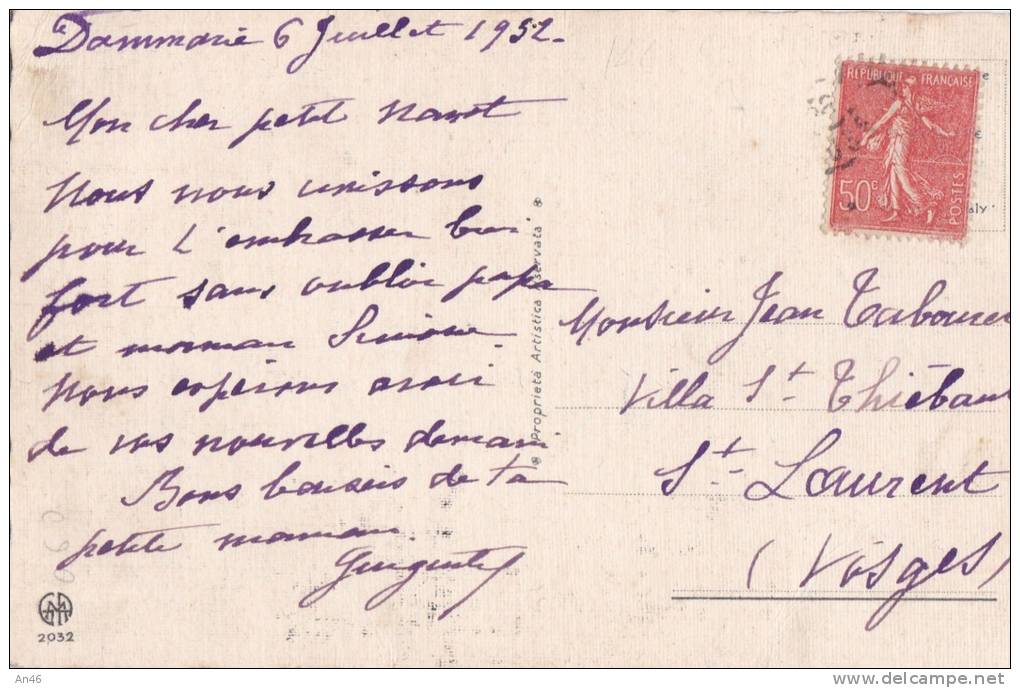 Dammarie 6 Juillet 1932.
Mon cher petit
Nous nous unissons
pour t'embrasser bien
fort sans oublier papa
et maman Simone.
Nous espérons avoir
de vos nouvelles demain
Bons baisers de ta
petite maman.
2032
An46
* Proprietà Artistica Riservata *
REPUBLIQUE FRANÇAISE
50c
POSTES
aly
Monsieur Jean
Villa St. Thiébaut
St. Laurent
(Vosges)
delcampe.net